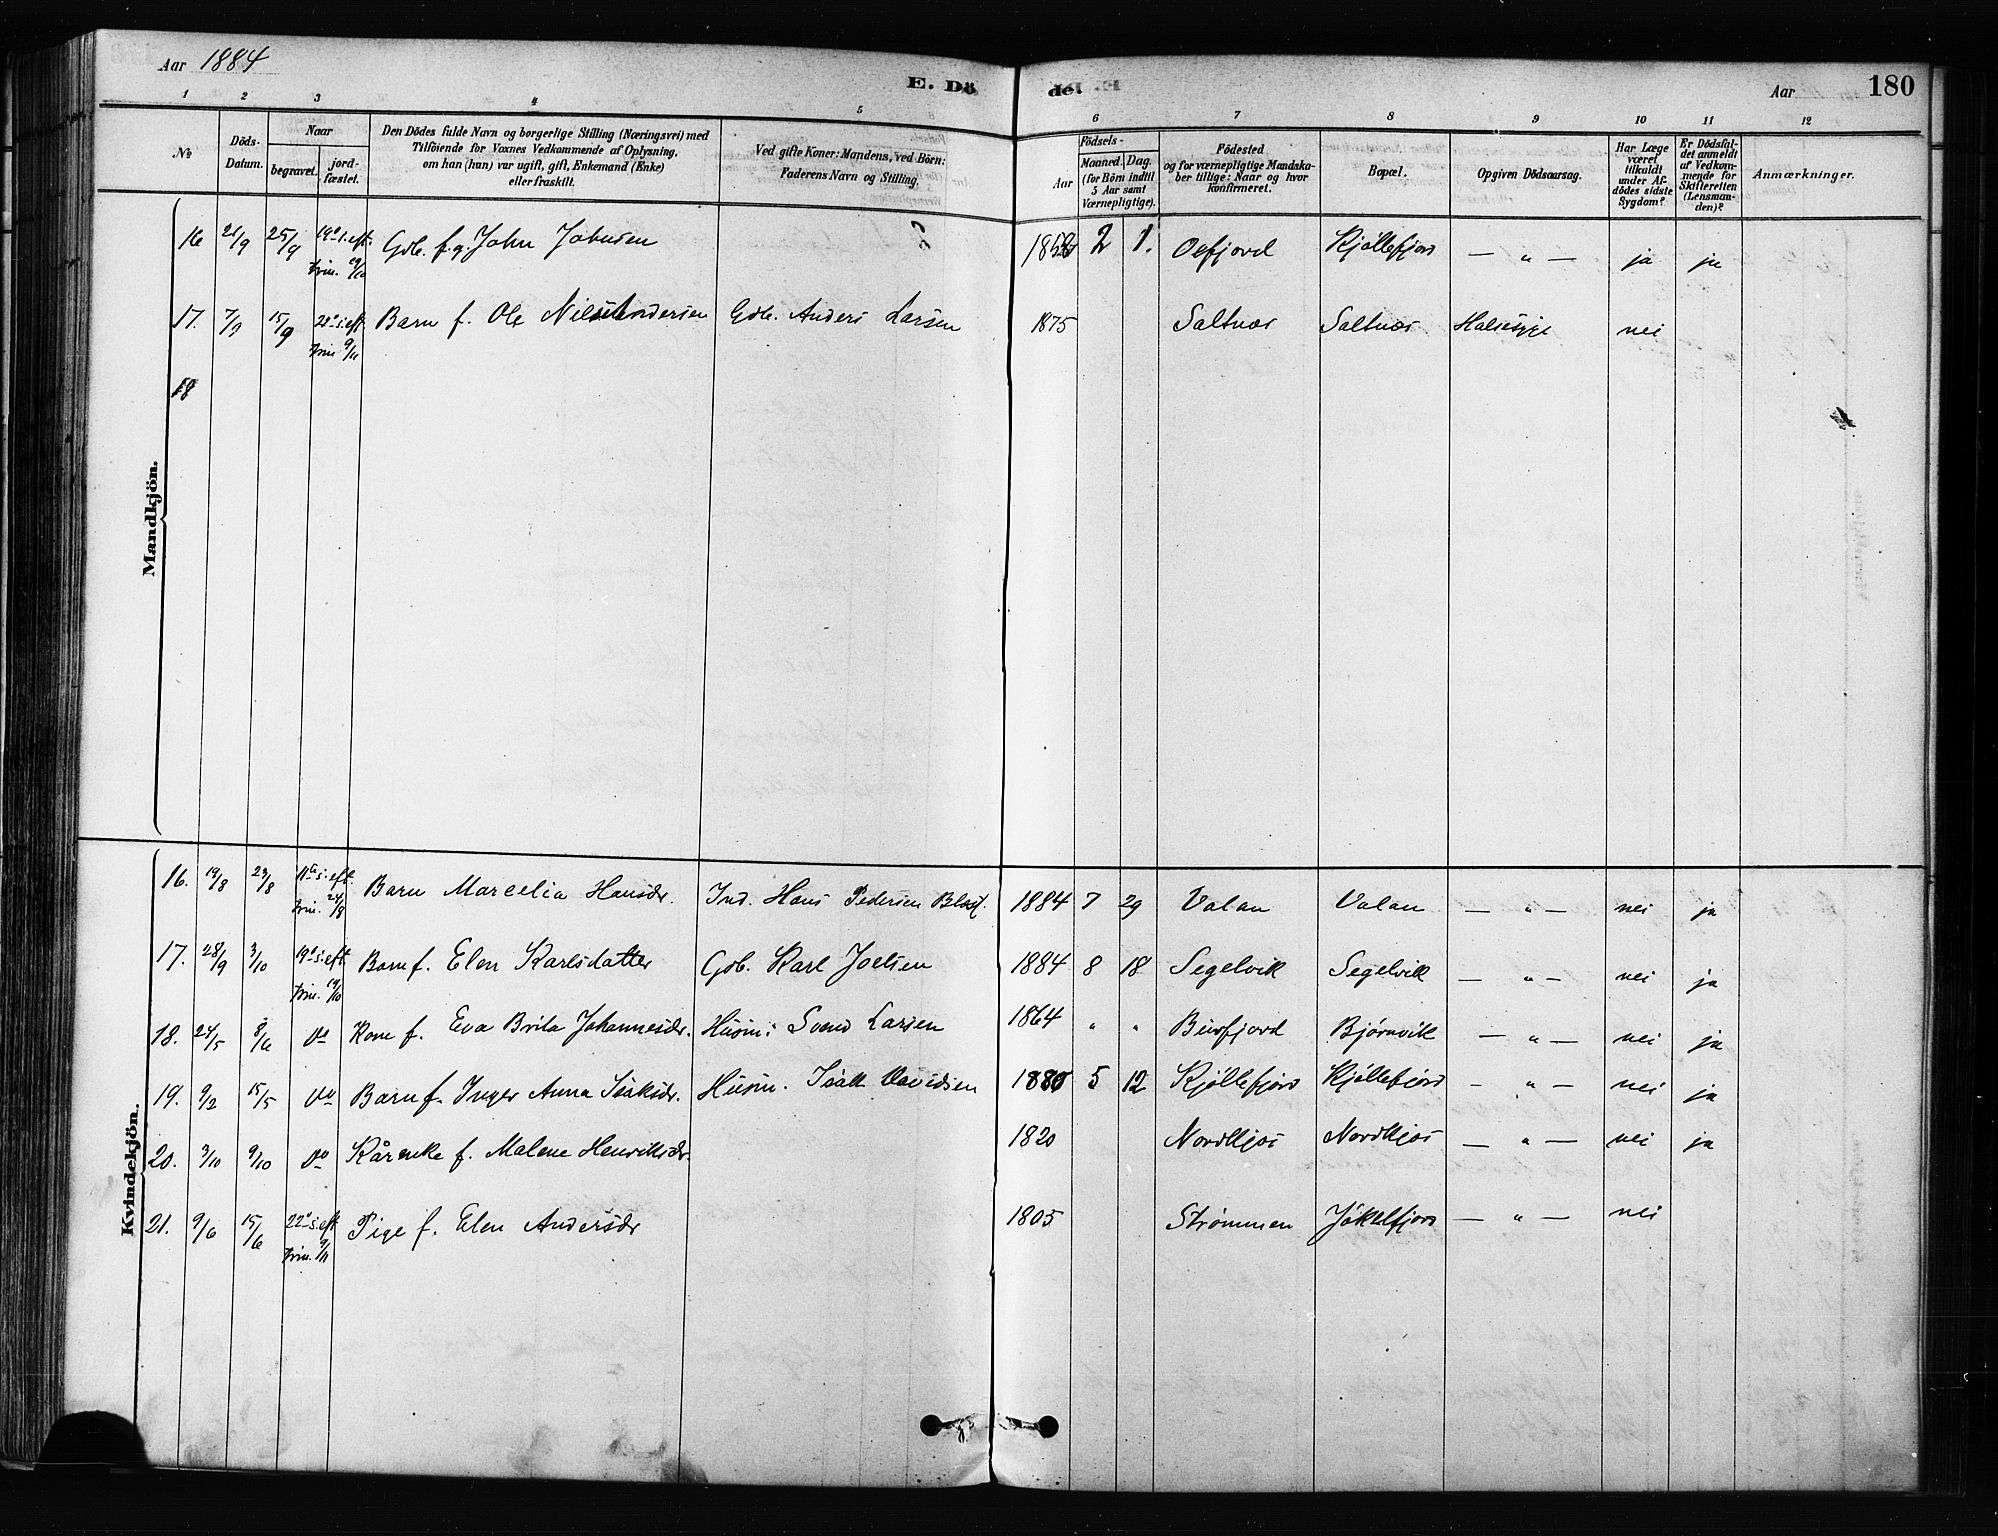 Aar 1884
E. Döde.
Aar
180
1 2 3 4 5 6 7 8 9 10 11 12
No
Döds-Datum.
Naar
begravet.
jord-fæstet.
Den Dödes fulde Navn og borgerlige Stilling (Næringsvei) med
Tilföiende for Voxnes Vedkommende af Oplysning,
om han (hun) var ugift, gift, Enkemand (Enke)
eller fraskilt.
Ved gifte Koner: Mandens, ved Börn:
Faderens Navn og Stilling.
Födsels-
Aar
Maaned. Dag.
(for Börn indtil
5 Aar samt
Værnepligtige).
Födested
og for værnepligtige Mandska-
ber tillige: Naar og hvor
konfirmeret.
Bopæl.
Opgiven Dödsaarsag.
Har Læge
været
tilkaldt
under Af-
dödes sidste
Sygdom?
Er Dödsfal-
det anmeldt
af Vedkom-
mende for
Skifteretten
(Lensman-
den)?
Anmærkninger.
Mandkjön.
16 21/9 25/9 19de s. eft. Trin. 19/10 Gdb. f. g. John Johnsen 2 1. Oxfjord Kjöllefjord — " — ja ja
17. 7/9 15/9 s. eft. Trin. 9/11 Barn f. Ole Nils Andersen Gdb. Anders Larsen 1875 Saltnæs Saltnæs Halsesyge nei
18
Kvindekjön.
16. 19/8 23/8 11te s. eft. Trin. 24/8 Barn Marcelia Hansdr. Ind. Hans Pedersen 1884 7 29 Valan Valan — " — nei ja
17. 28/9 3/10 19de s. eft. Trin. 19/10 Barn f. Elen Karlsdatter Gdb. Karl Joelsen 1884 8 18 Segelvik Segelvik — " — nei ja
18. 24/5 8/6 do Kone f. Eva Brita Johannesdr. Husm: Svend Larsen 1864 " " Burfjord Bjørnvik — " — nei ja
19. 9/2 15/5 do Barn f. Inger Anna Isaksdr. Husm. Isak Davidsen 5 12 Kjöllefjord Kjöllefjord — " — nei ja
20. 3/10 9/10 do Kårenke f. Malene Henriksdr. 1820 Nordkjos Nordkjos — " — nei ja
21. 9/6 15/6 22de s. eft. Trin. 9/11 Pige f. Elen Andersdr 1805 Strømmen Jökelfjord — " — nei